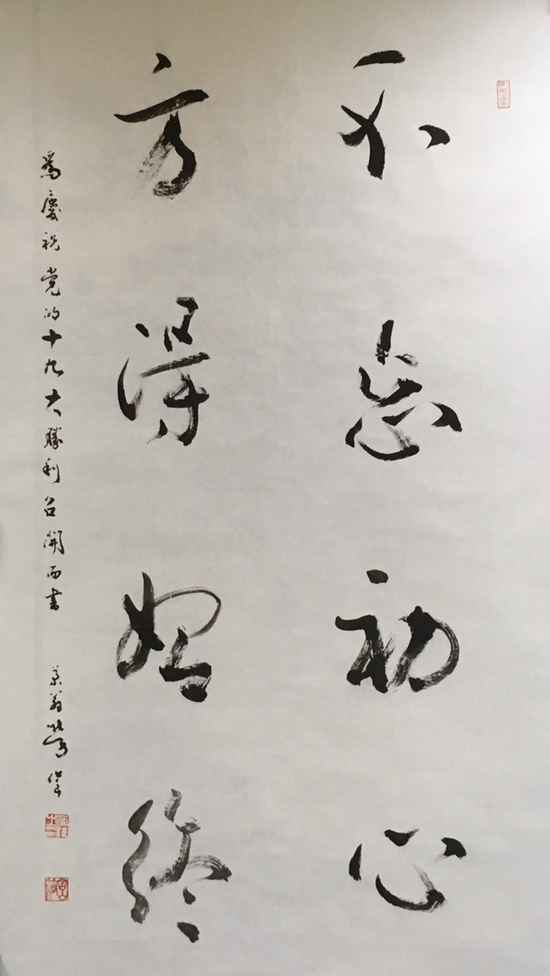 不忘初心
方得始终
为庆祝党的十九大胜利召开而书